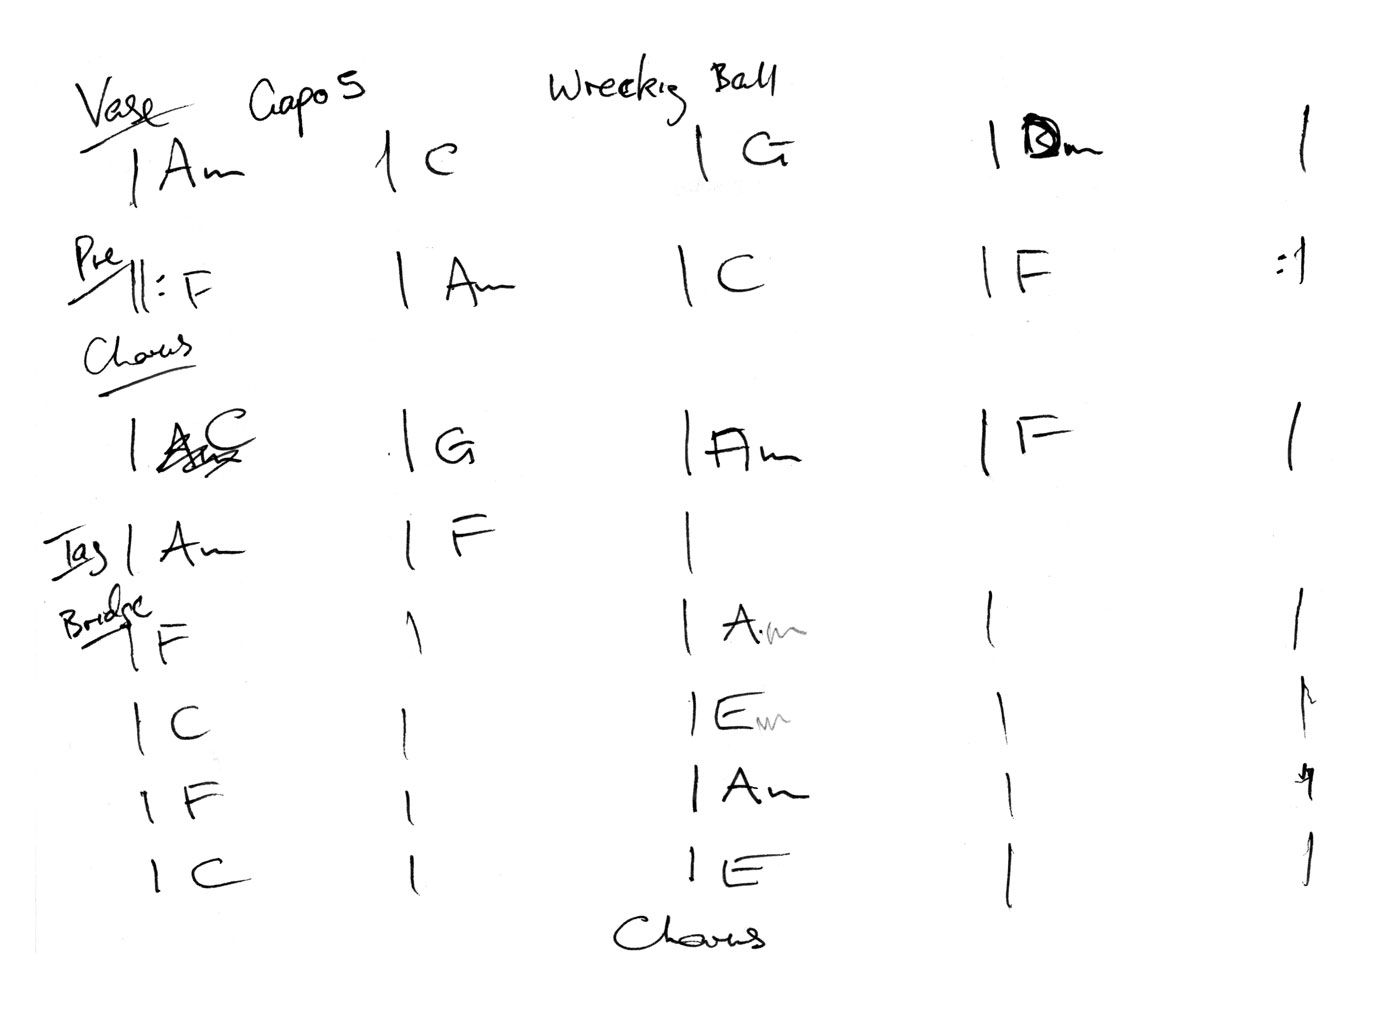 Verse Capo 5 Wrecking Ball
| Am | C | G | Dm |
Pre ||: F | Am | C | F :|
Chorus
| C | G | Am | F |
Tag | Am | F |
Bridge
| F | | Am | |
| C | | Em | |
| F | | Am | |
| C | | E | |
Chorus